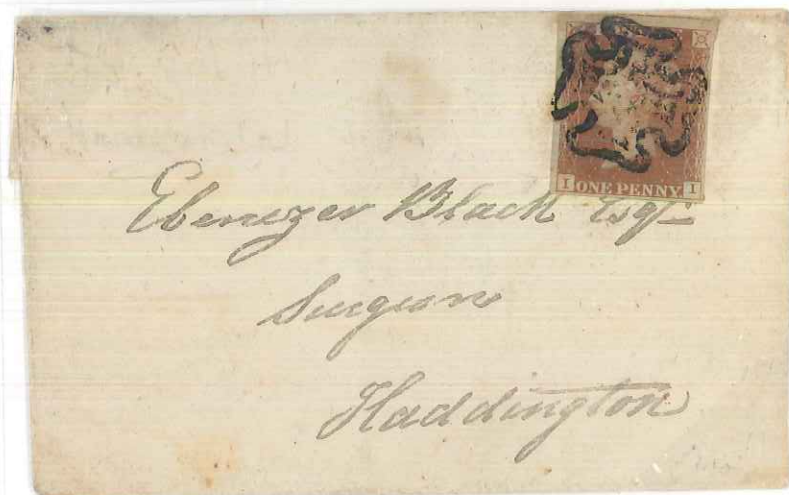 I ONE PENNY I
Ebenezer Black Esqr
Surgeon
Haddington